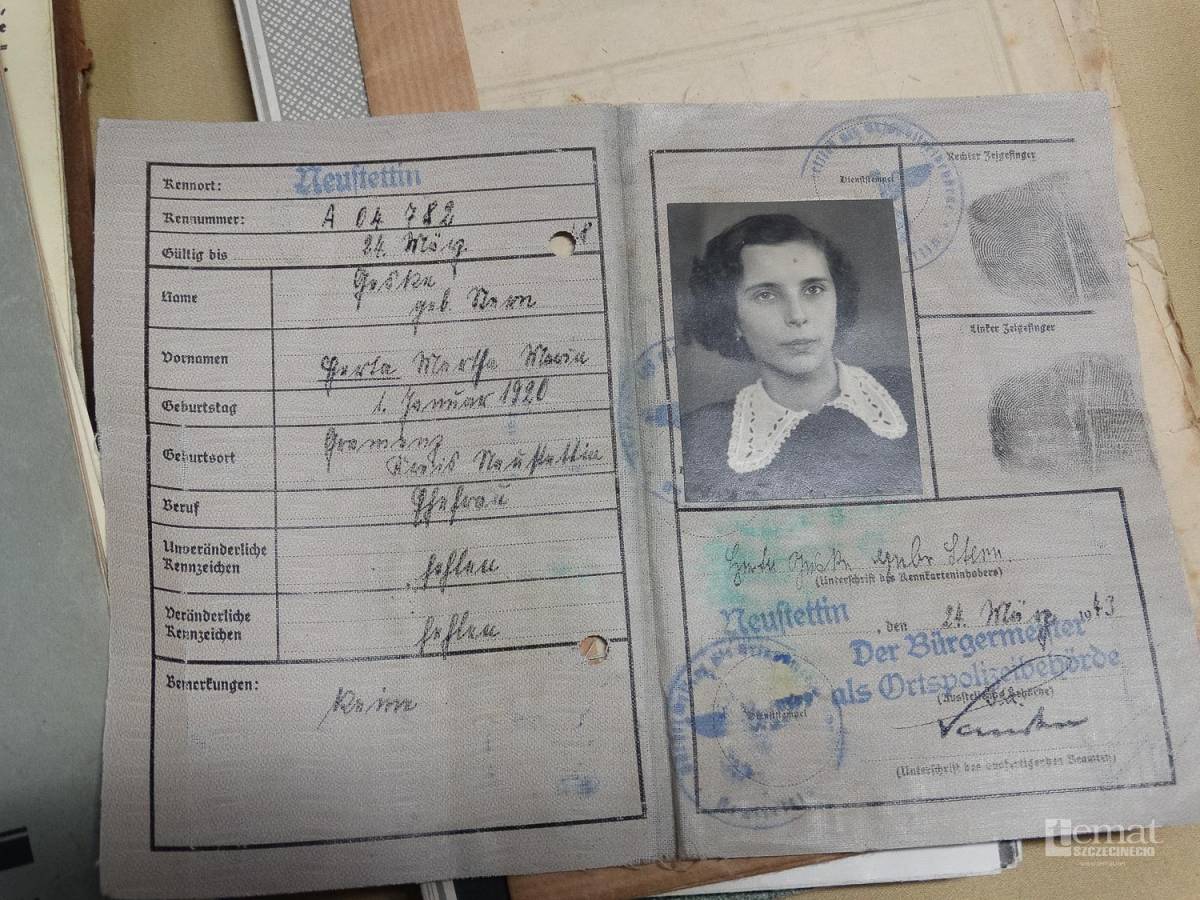 Kennort: Neustettin
Kennummer: A 04782
Gültig bis 24. März 48
Name Geske
geb.
Vornamen Herta Martha Maria
Geburtstag 1. Januar 1920
Geburtsort Gramenz
Kreis Neustettin
Beruf Ehefrau
Unveränderliche
Kennzeichen fehlen
Veränderliche
Kennzeichen fehlen
Bemerkungen:
Keine
Dienststempel
Rechter Zeigefinger
Linker Zeigefinger
Herta Geske
(Unterschrift des Kennkarteninhabers)
Neustettin, den 24. März 1943
Der Bürgermeister
als Ortspolizeibehörde
(Ausstellende Behörde)
Dienststempel
(Unterschrift des ausfertigenden Beamten)
temat
SZCZECINECKI